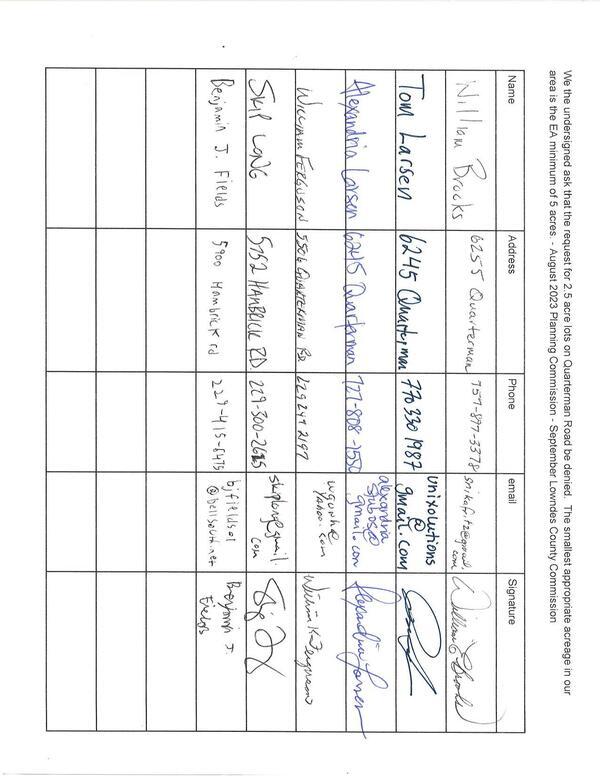 We the undersigned ask that the request for 2.5 acre lots on Quarterman Road be denied. The smallest appropriate acreage in our
area is the EA minimum of 5 acres. - August 2023 Planning Commission - September Lowndes County Commission
Name Address Phone email Signature
William Brooks 6255 Quarterman 757-897-3378 @gmail.com
Tom Larsen 6245 Quarterman 770 330 1987 unixolutions@gmail.com
Alexandria Larsen 6245 Quarterman 727-808-7550 alexandria @gmail.com Alexandria Larsen
William Ferguson 5506 Quarterman Rd 229 247 2197 wgunh@yahoo.com William K Ferguson
Skip Long 5752 Hambrick Rd. 229-300-2615 skiplong@gmail.com
Benjamin J. Fields 5900 Hambrick rd 229-415-6475 bjfields01@bellsouth.net Benjamin J. Fields